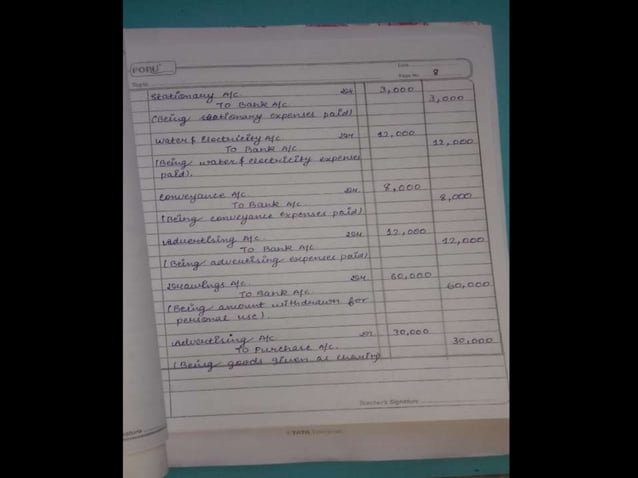 PORU
Date
Page No. 8
Topic
Stationary A/c Dr. 3,000
To Bank A/c 3,000
(Being stationary expenses paid)
Water & Electricity A/c Dr. 12,000
To Bank A/c 12,000
(Being water & electricity expenses
paid).
Conveyance A/c Dr. 8,000
To Bank A/c. 8,000
(Being conveyance expenses paid)
Advertising A/c. Dr. 12,000
To Bank A/c 12,000
(Being advertising expenses paid)
Drawings A/c Dr. 60,000
To Bank A/c. 60,000
(Being amount withdrawn for
personal use).
Advertising A/c Dr. 30,000
To Purchase A/c. 30,000
(Being goods given as charity)
Teacher's Signature
TATA